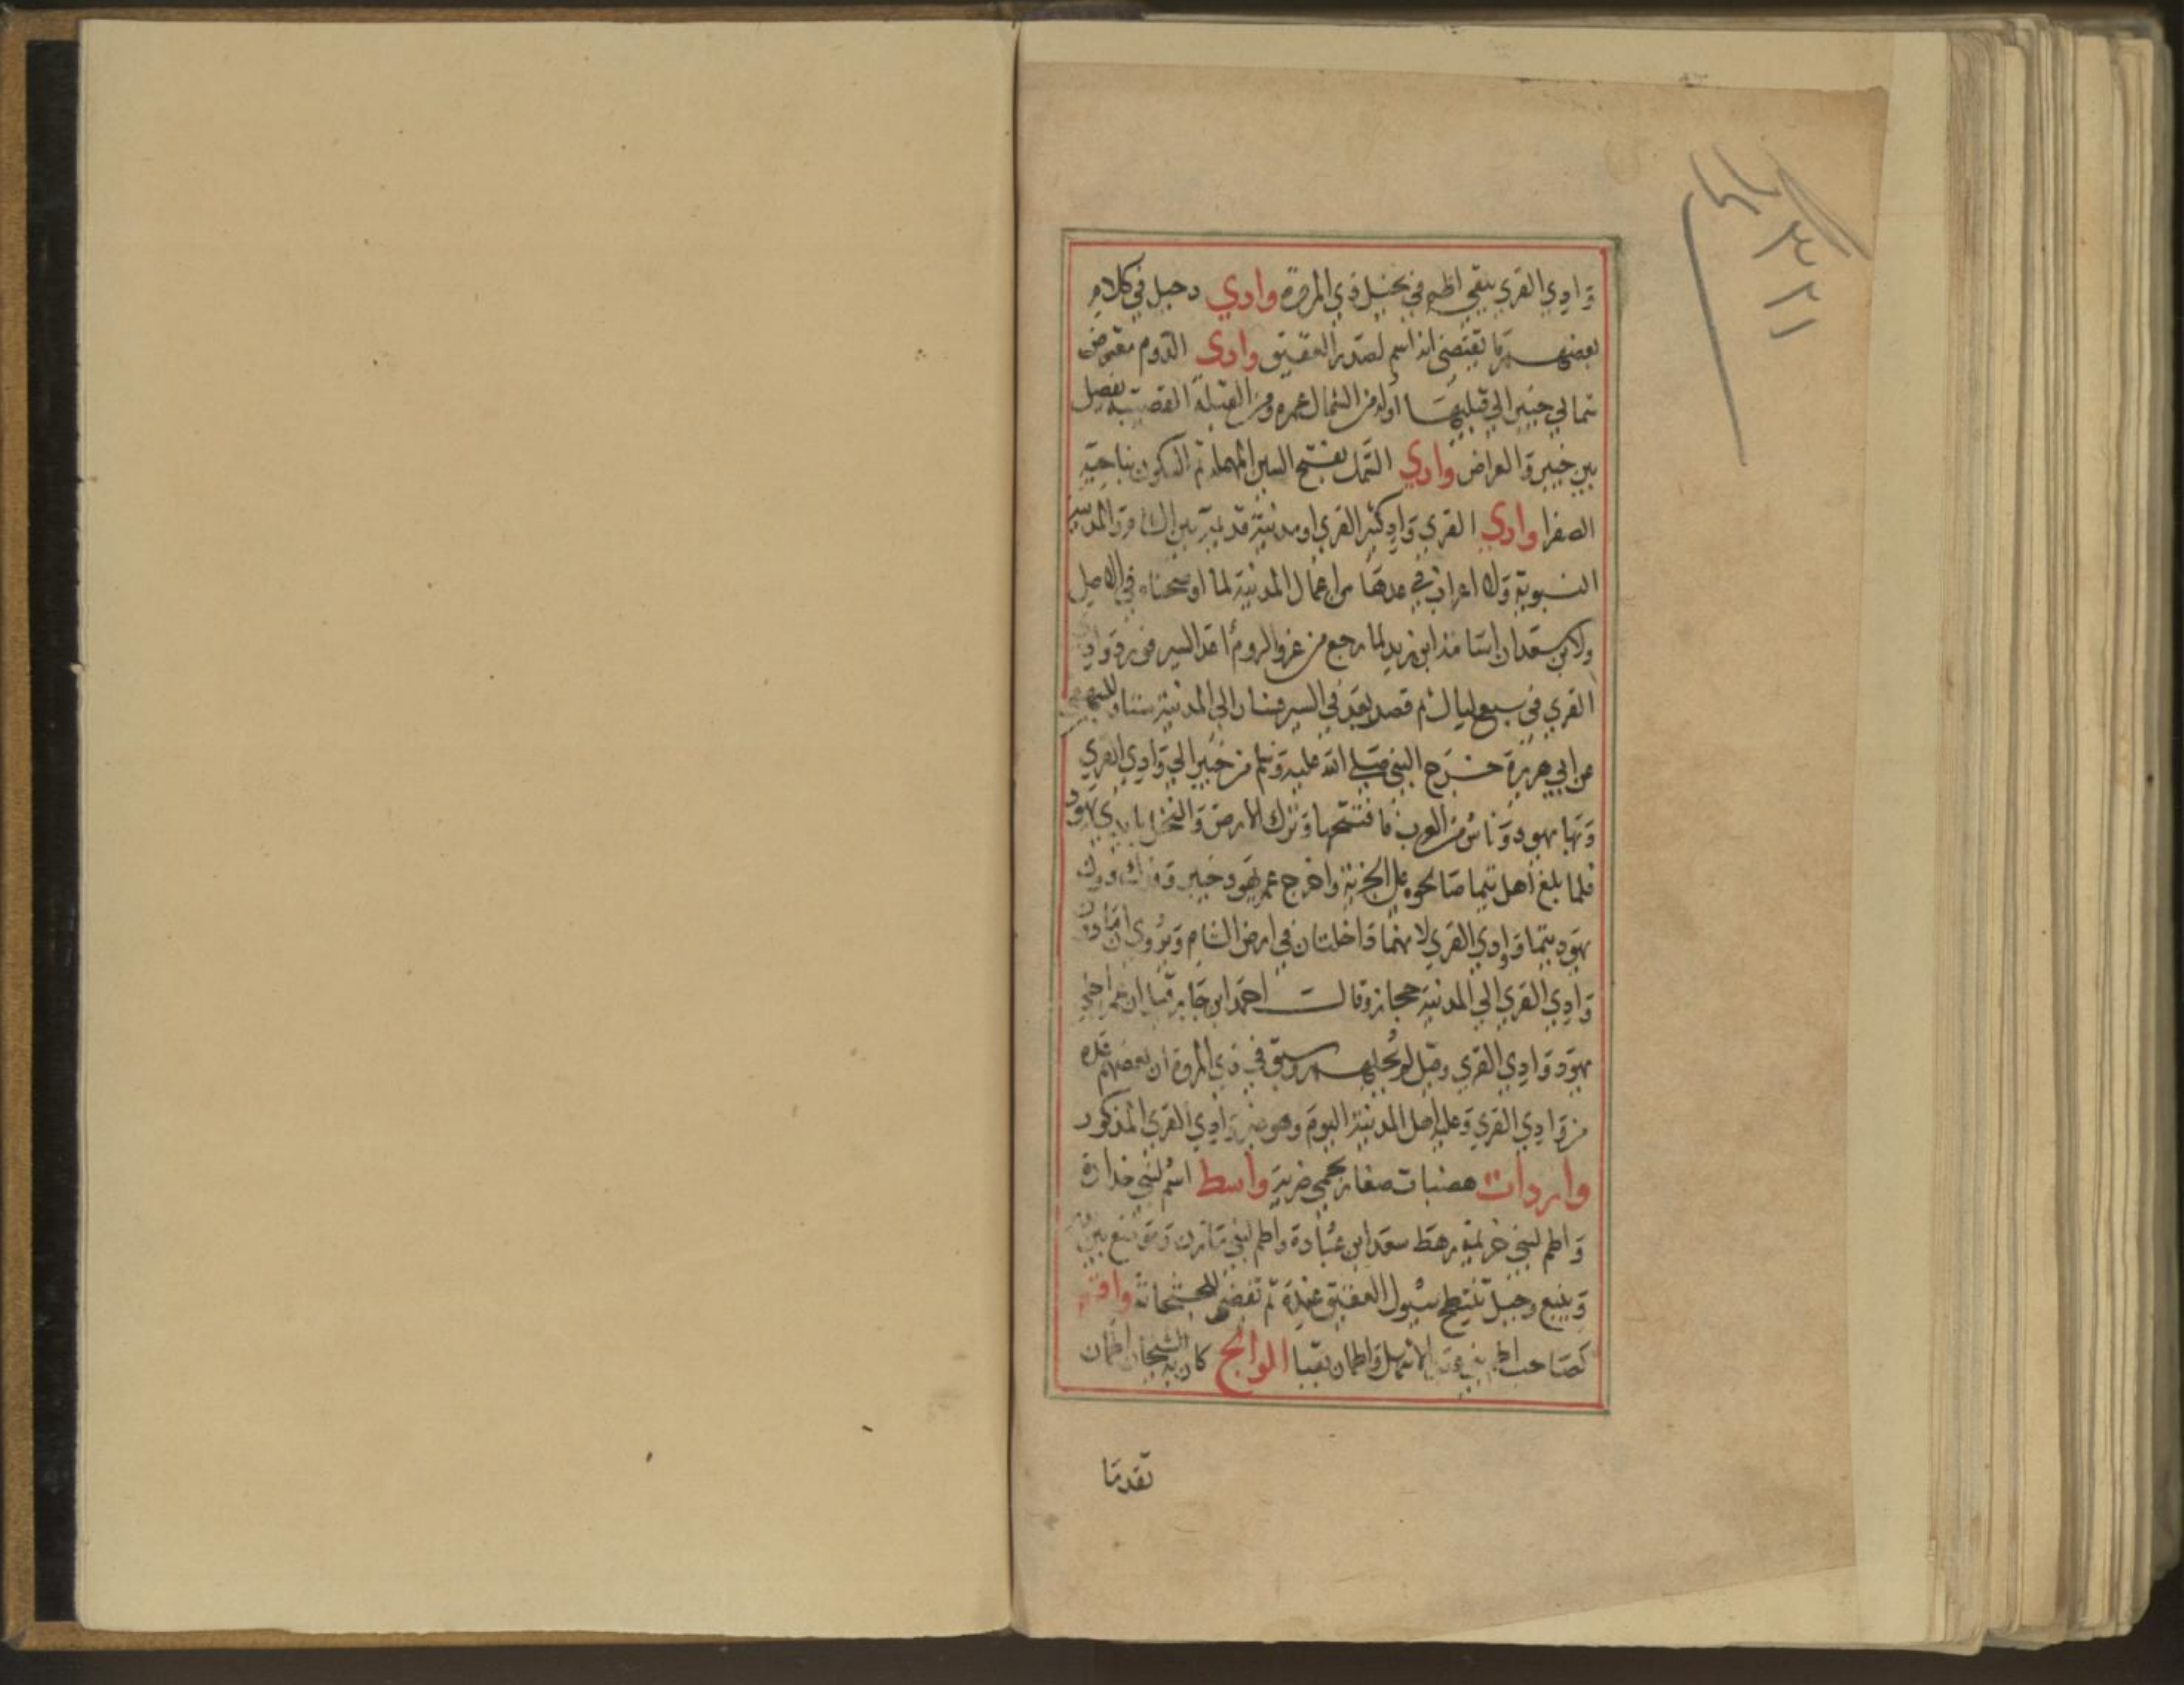 وادي القرى بنقى اظم في نخيل ذي المروة وادي دحيل في كلام
بعضهم ما يقتضي انه اسم لصدر العقيق وادى الدوم معترض
شمالي خيبر الى قبليها أوله من الشمال غمره ومن القبلة القصيبة يفصل
بين خيبر والعوارض وادي السمك بفتح السين المهملة ثم السكون بناحية
الصفرا وادي القرى واد كثير القرى او مدينة قديمة بين الشام والمدينة
النبوية ولا اعراف في عدها من اعمال المدينة لما اوضحناه في الاصل
ولابن سعد ان اسامة ابن زيد لما رجع من غزو الروم اغذ السير فورد وادي
القرى في سبع ليال ثم قصد بعد في السير فسار الى المدينة ستا وللبيهقي
عن ابي هريرة خرج النبي صلى الله عليه وسلم من خيبر الى وادي القرى
وبها يهود وناس من العرب فافتتحها وترك الارض والنخل بايدي يهود
فلما بلغ أهل تيما صالحوه على الجزية واخرج عمر يهود خيبر وفدك دون
يهود تيما ووادي القرى لانهما داخلتان في ارض الشام ويروى ان ما دون
وادي القرى الى المدينة حجاز وقال احمد ابن جابر قيل ان عمر اجلى
يهود وادي القرى وقيل لم يجليهم وسبق في ذي المروة ان بعضهم عده
من وادي القرى وعليه اهل المدينة اليوم وهو غير وادي القرى المذكور
واردات هضبات صغار بحمى ضرية واسط اسم لبني خدارة
واطم لبني خزيمة رهط سعد ابن عبادة واطم لبني مازن وموضع بين
وينبع وجبل تنتطح سيول العقيق عنده ثم تفضي للجثجاثة واقم
كصاحب اطم بني عبد الاشهل واطمان بقبا الوالج كان به الشيخان اطمان
تقدما
٣٢١